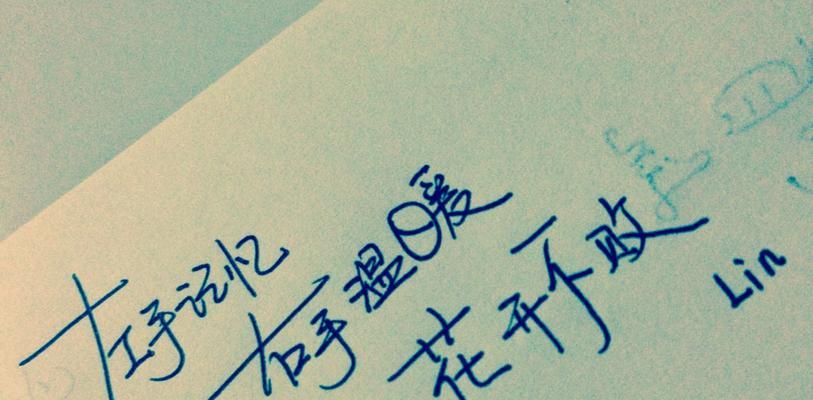 左手记忆
右手温暖
花开不败
Lin